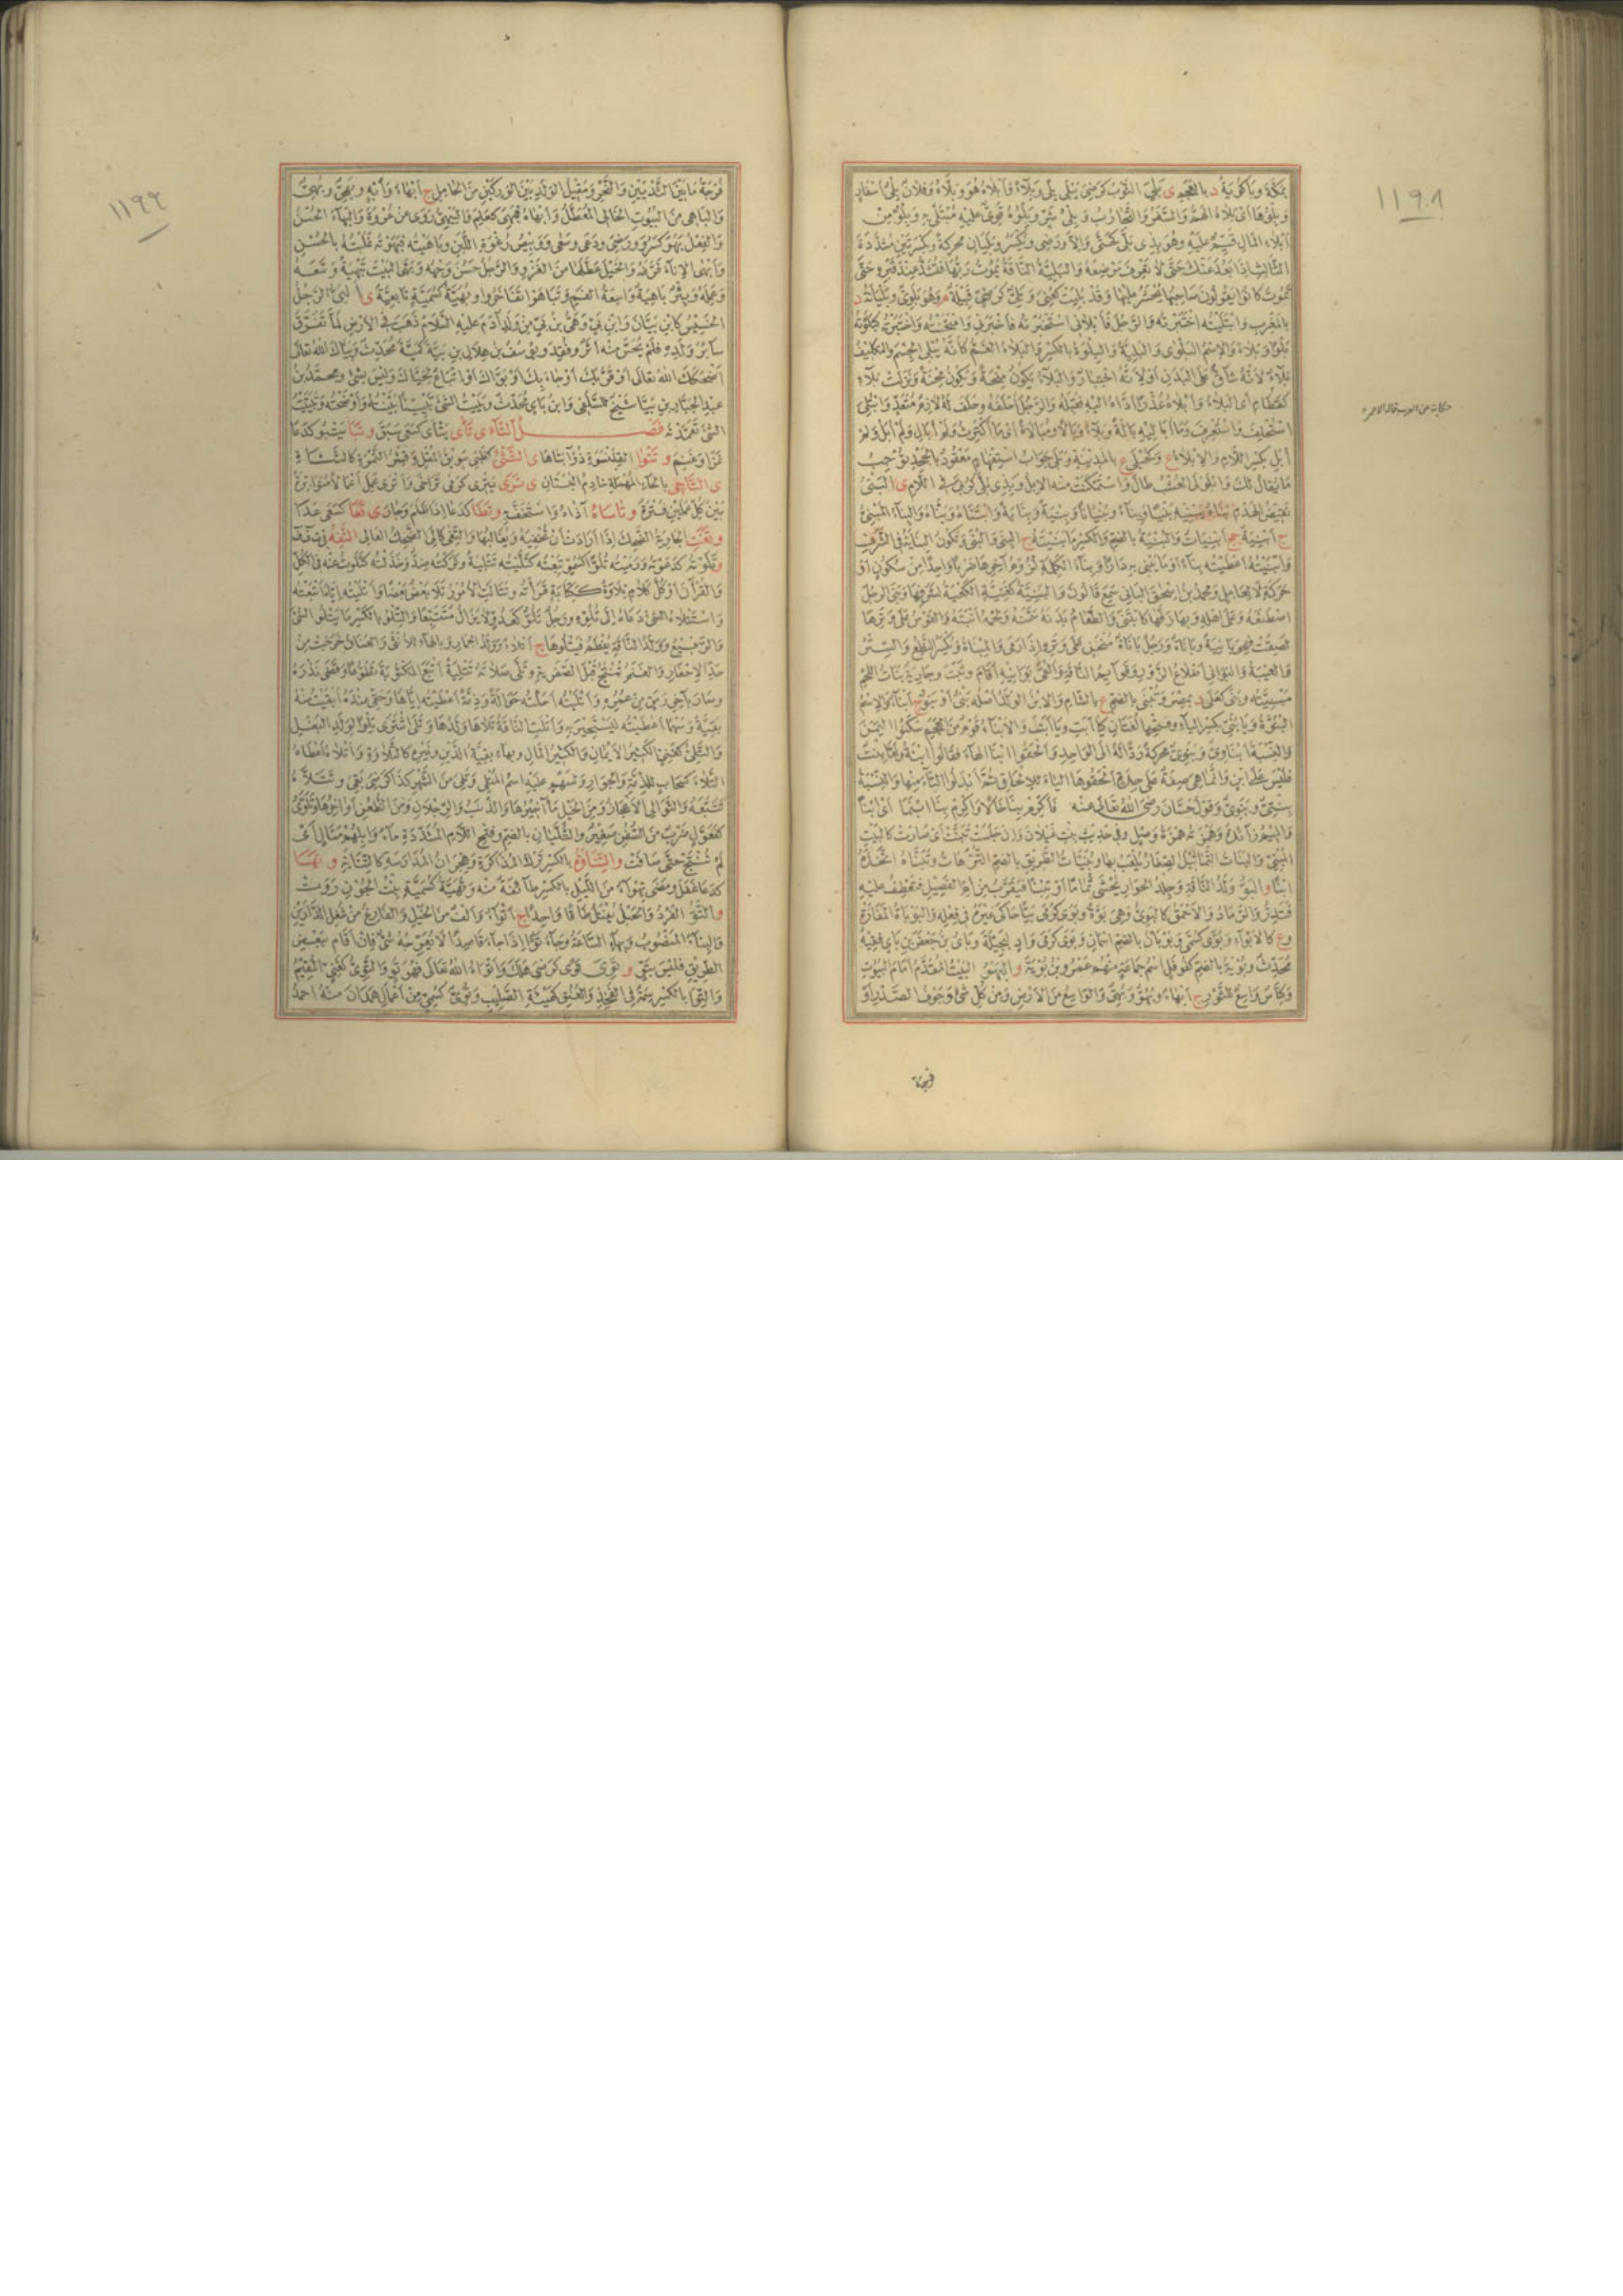 ١١٩٨
بمكة وبا كرية د بالعجم ى بلى الثوب كرضى يبلى بلى وبلاء وأبلاه هو وبلاه وفلان بلى أسفار
وبلوها أى بلاه الهم والسفر والتجارب وبلى شر وبلوه قوى عليه مبتلى به وبلو من
أبلاء المال قيم عليه وهو بذى بلى كحتى وإلا ورضى ويكسر وبليان محركة وبكسرتين مشددة
الثالث إذا بعد عنك حتى لا تعرف موضعه والبلية الناقة يموت ربها فتشد عند قبره حتى
تموت كانوا يقولون صاحبها يحشر عليها وقد بليت كعنى وبلى كرضى قبيلة م وهو بلوى وبليانة د
بالمغرب وابتليته اختبرته والرجل فأبلانى استخبرته فأخبرنى وامتحنته واختبرته كبلوته
بلوا وبلاء والاسم البلوى والبلية والبلوة بالكسر والبلاء الغم كأنه يبلى الجسم والتكليف
بلاء لأنه شاق على البدن أو لأنه اختبار والبلاء يكون منحة ويكون محنة ونزلت بلاء
كقطام أى البلاء وأبلاه عذرا أداه إليه فقبله والرجل أحلفه وحلف له لازم متعد وابتلى
استحلف واستعرف وما أباليه بالة وبلاء وبالا ومبالاة أى ما أكترث ولم أبال ولم أبل ولم
أبل بكسر اللام والإبلاء ع وكحبلى ع بالمدينة وبلى جواب استفهام معقود بالجحد يوجب
ما يقال لك وابلولى العشب طال واستمكنت منه الإبل وبذى بلى كربى فى اللام ى البنى
نقيض الهدم بناه يبنيه بنيا وبناء وبنيانا وبنية وبناية وابتناه وبناه والبناء المبنى
ج أبنية جج أبنيات والبنية بالضم والكسر ما بنيته ج البنى والبنى وتكون البناية فى الشرف
وأبنيته أعطيته بناء أو ما يبنى به دارا وبناء الكلمة لزوم آخرها ضربا واحدا من سكون أو
حركة لا لعامل ومحمد بن إسحق البانى سمع قالون والبنية كغنية الكعبة لشرفها وبنى الرجل
اصطنعه وعلى أهله وبها زفها كابتنى والطعام بدنه سمنه ولحمه أنبته والقوس على وترها
لصقت فهى بانية وباناة ورجل باناة منحن على وتره إذا رمى والمبناة ويكسر النطع والستر
والعيبة والبوانى أضلاع الزور وقوائم الناقة وألقى بوانيه أقام وثبت وجارية بنات اللحم
مبنيته وبنى كعلى د بمصر وتبنى بالضم ع بالشام والابن الولد أصله بنى أو بنو ج أبناء والاسم
البنوة ويا بنى بكسر الياء وفتحها لغتان كيا أبت ويا أبت والأبناء قوم من العجم سكنوا اليمن
والنسبة أبناوى وبنوى محركة ردا له إلى الواحد وألحقوا ابنا الهاء فقالوا ابنة وأما بنت
فليس على ابن وإنما هى صيغة على حدة ألحقوها الياء للإلحاق ثم أبدلوا التاء منها والنسبة
بنتى وبنوى وقول حسان رضى الله تعالى عنه فأكرم بنا خالا وأكرم بنا ابنما أى ابنا
والميم زائدة وهمزته همزة وصل وفى حديث بنت غيلان وإن جلست تبنت أى صارت كالبيت
المبنى والبنات التماثيل الصغار يلعب بها وبنيات الطريق بالضم الترهات وتبناه اتخذه
ابنا و البو ولد الناقة وجلد الحوار يحشى ثماما أو تبنا فيقرب من أم الفصيل فتعطف عليه
فتدر والرماد والأحمق كالبوى وهى بوة وبوى كرمى بيا حاكى غيره فى فعله والبوباة المفازة
وع كالأبواء وبوى كسمى وبويان بالضم اسمان وبوى كرمى واد لبجيلة وباى بن جعفر بن باى فقيه
محدث وبوية بالضم كقوفل اسم جماعة منهم عمرو بن بوية و البهو البيت المقدم أمام البيوت
وكناس واسع للثور ج أبهاء وبهو وبهى والواسع من الأرض ومن كل شئ وجوف الصدر أو
حكاية عن العرب قاله الاحمر
فرجة
١١٩٩
فرجة ما بين الثديين والنحر ومقيل الولد بين الوركين من الحامل ج أبهاء وأبه وبهى وبهى
والباهى من البيوت الخالى المعطل وأبهاه فبهى كعلم والبهى روى عن عروة والبهاء الحسن
والفعل بهو كسرو ورضى ودعى وسعى ووبيص رغوة اللبن وباهيته فبهوته غلبته بالحسن
وأبهى الإناء فرغه والخيل عطلها من الغزو والرجل حسن وجهه وبهى البيت تبهية وسعه
وعمله وبئر باهية واسعة الفم وتباهوا تفاخروا وبهية كسمية تابعية ى البى الرجل
الخسيس كابن بيان وابن بى وهى بن بى من ولد آدم عليه السلام ذهب فى الأرض لما تفرق
سائر ولده فلم يحس منه أثر وفقد ويوسف بن هلال بن بية كمية محدث وبياك الله تعالى
أضحكك الله تعالى أو قربك أو جاء بك أو بوأك أو اتباع لحياك وليس بشئ ومحمد بن
عبد الجبار بن بيا شيخ للسلفى وابن باى محدث وبييت الشئ تبيينا بينته وأوضحته وتبييت
الشئ تعمدته فصل التاء ى تأى يتأى كسعى سبق و تبا يتبو كدعا
غزا وغنم و تتوا القلنسوة ذؤابتاها ى التثى كظبى سويق المقل وقشر التمر كالثتاة
ى التاحى بالحاء المهملة خادم البستان ى ترى يترى كرمى تراخى وأترى عمل أعمالا متواترة
بين كل عملين فترة و تاساه آذاه واستخف به و تطا كدعا إذا ظلم وجار ى تعا كسعى عدا
و تغت الجارية الضحك إذا أرادت أن تخفيه ويغالبها والتغى كإلى الضحك العالى التفة فى ت ف ف
و تلوته كدعوته ورميته تلوا كسمو تبعته كتليته تتلية وتركته ضد وخذلته كتلوت عنه فى الكل
والقرآن أو كل كلام تلاوة ككتابة قرأته وتتالت الأمور تلا بعض بعضا وأتليته إياه أتبعته
واستتلاه الشئ دعاه إلى تلوه ورجل تلو كعدو لا يزال متتبعا والتلو بالكسر ما يتلو الشئ
والرفيع وولد الناقة يفطم فيتلوها ج أتلاء وولد الحمار وبالهاء للأنثى والعناق خرجت من
حد الإجفار والغنم تنتج قبل الصفرية وتلى صلاته تتلية أتبع المكتوبة تطوعا وقضى نذره
وصار بآخر رمق من عمره وأتليته أحلته حوالة وذمة أعطيته إياها وحقى عنده أبقيت منه
بقية وسهما أعطيته ليستجير به وأتلت الناقة تلاها ولدها وتلى اشترى تلوا لولد البغل
والتلى كغنى الكثير الأيمان والكثير المال وبهاء بقية الدين وغيره كالتلاوة وأتلاه أعطاه
التلاء كسحاب للذمة والجوار ولسهم عليه اسم المتلى وتلى من الشهر كذا كرضى بقى وتتلاه
تتبعه والتوالى الأعجاز ومن الخيل مآخيرها والذنب والرجلان ومن الظعن أواخرها وتلوى
كفعول ضرب من السفن صغير والتليان بالضم وفتح اللام المشددة ماء وإبلهم متالى أى
لم تنتج حتى صافت والتناوة بالكسر ترك المذاكرة وهجران المدارسة كالتناية و تها
كدعا غفل ومضى تهواء من الليل بالكسر طائفة منه وتهية كسمية بنت الجون روت
و التو الفرد والحبل يفتل طاقا واحدا ج أتواء وألف من الخيل والفارغ من شغل الدارين
والبناء المنصوب وبهاء الساعة وجاء توا إذا جاء قاصدا لا يعرجه شئ فإن أقام ببعض
الطريق فليس بتو و توى توى كرضى هلك وأتواه الله تعالى فهو تو والتوى كغنى المقيم
والتواء بالكسر سمة فى الفخذ والعنق كهيئة الصليب وتوى كسمى من أعمال همدان منه أحمد